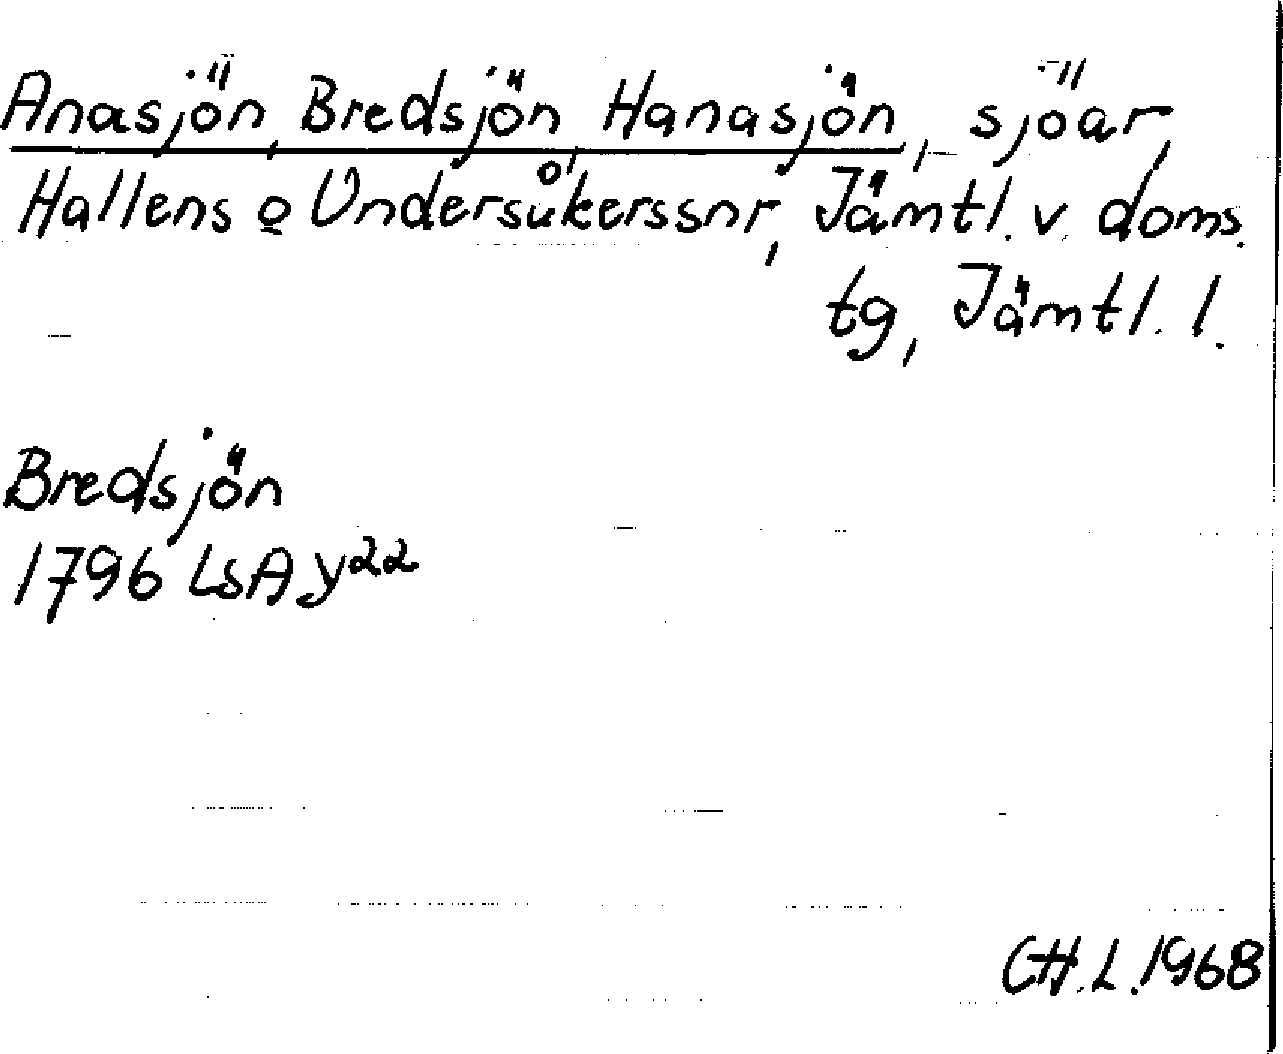 Anasjön, Bredsjön, Hanasjön, sjöar,
Hallens o Undersåkerssnr, Jämtl. v. doms.
tg, Jämtl. l.
Bredsjön
1796 LSA y²²
CH.L.1968